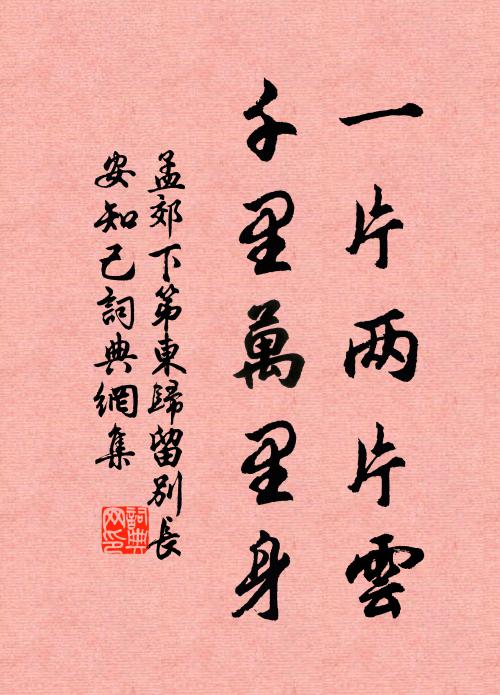 一片两片雲
千里萬里身
孟郊下第東歸留別長
安知己詞典網集
詞典網印